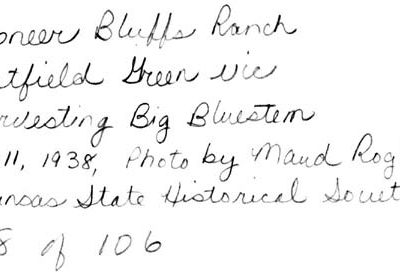 oneer Bluffs Ranch
tfield Green vic
rvesting Big Bluestem
11, 1938, Photo by Maud Rog
ansas State Historical Societ
8 of 106